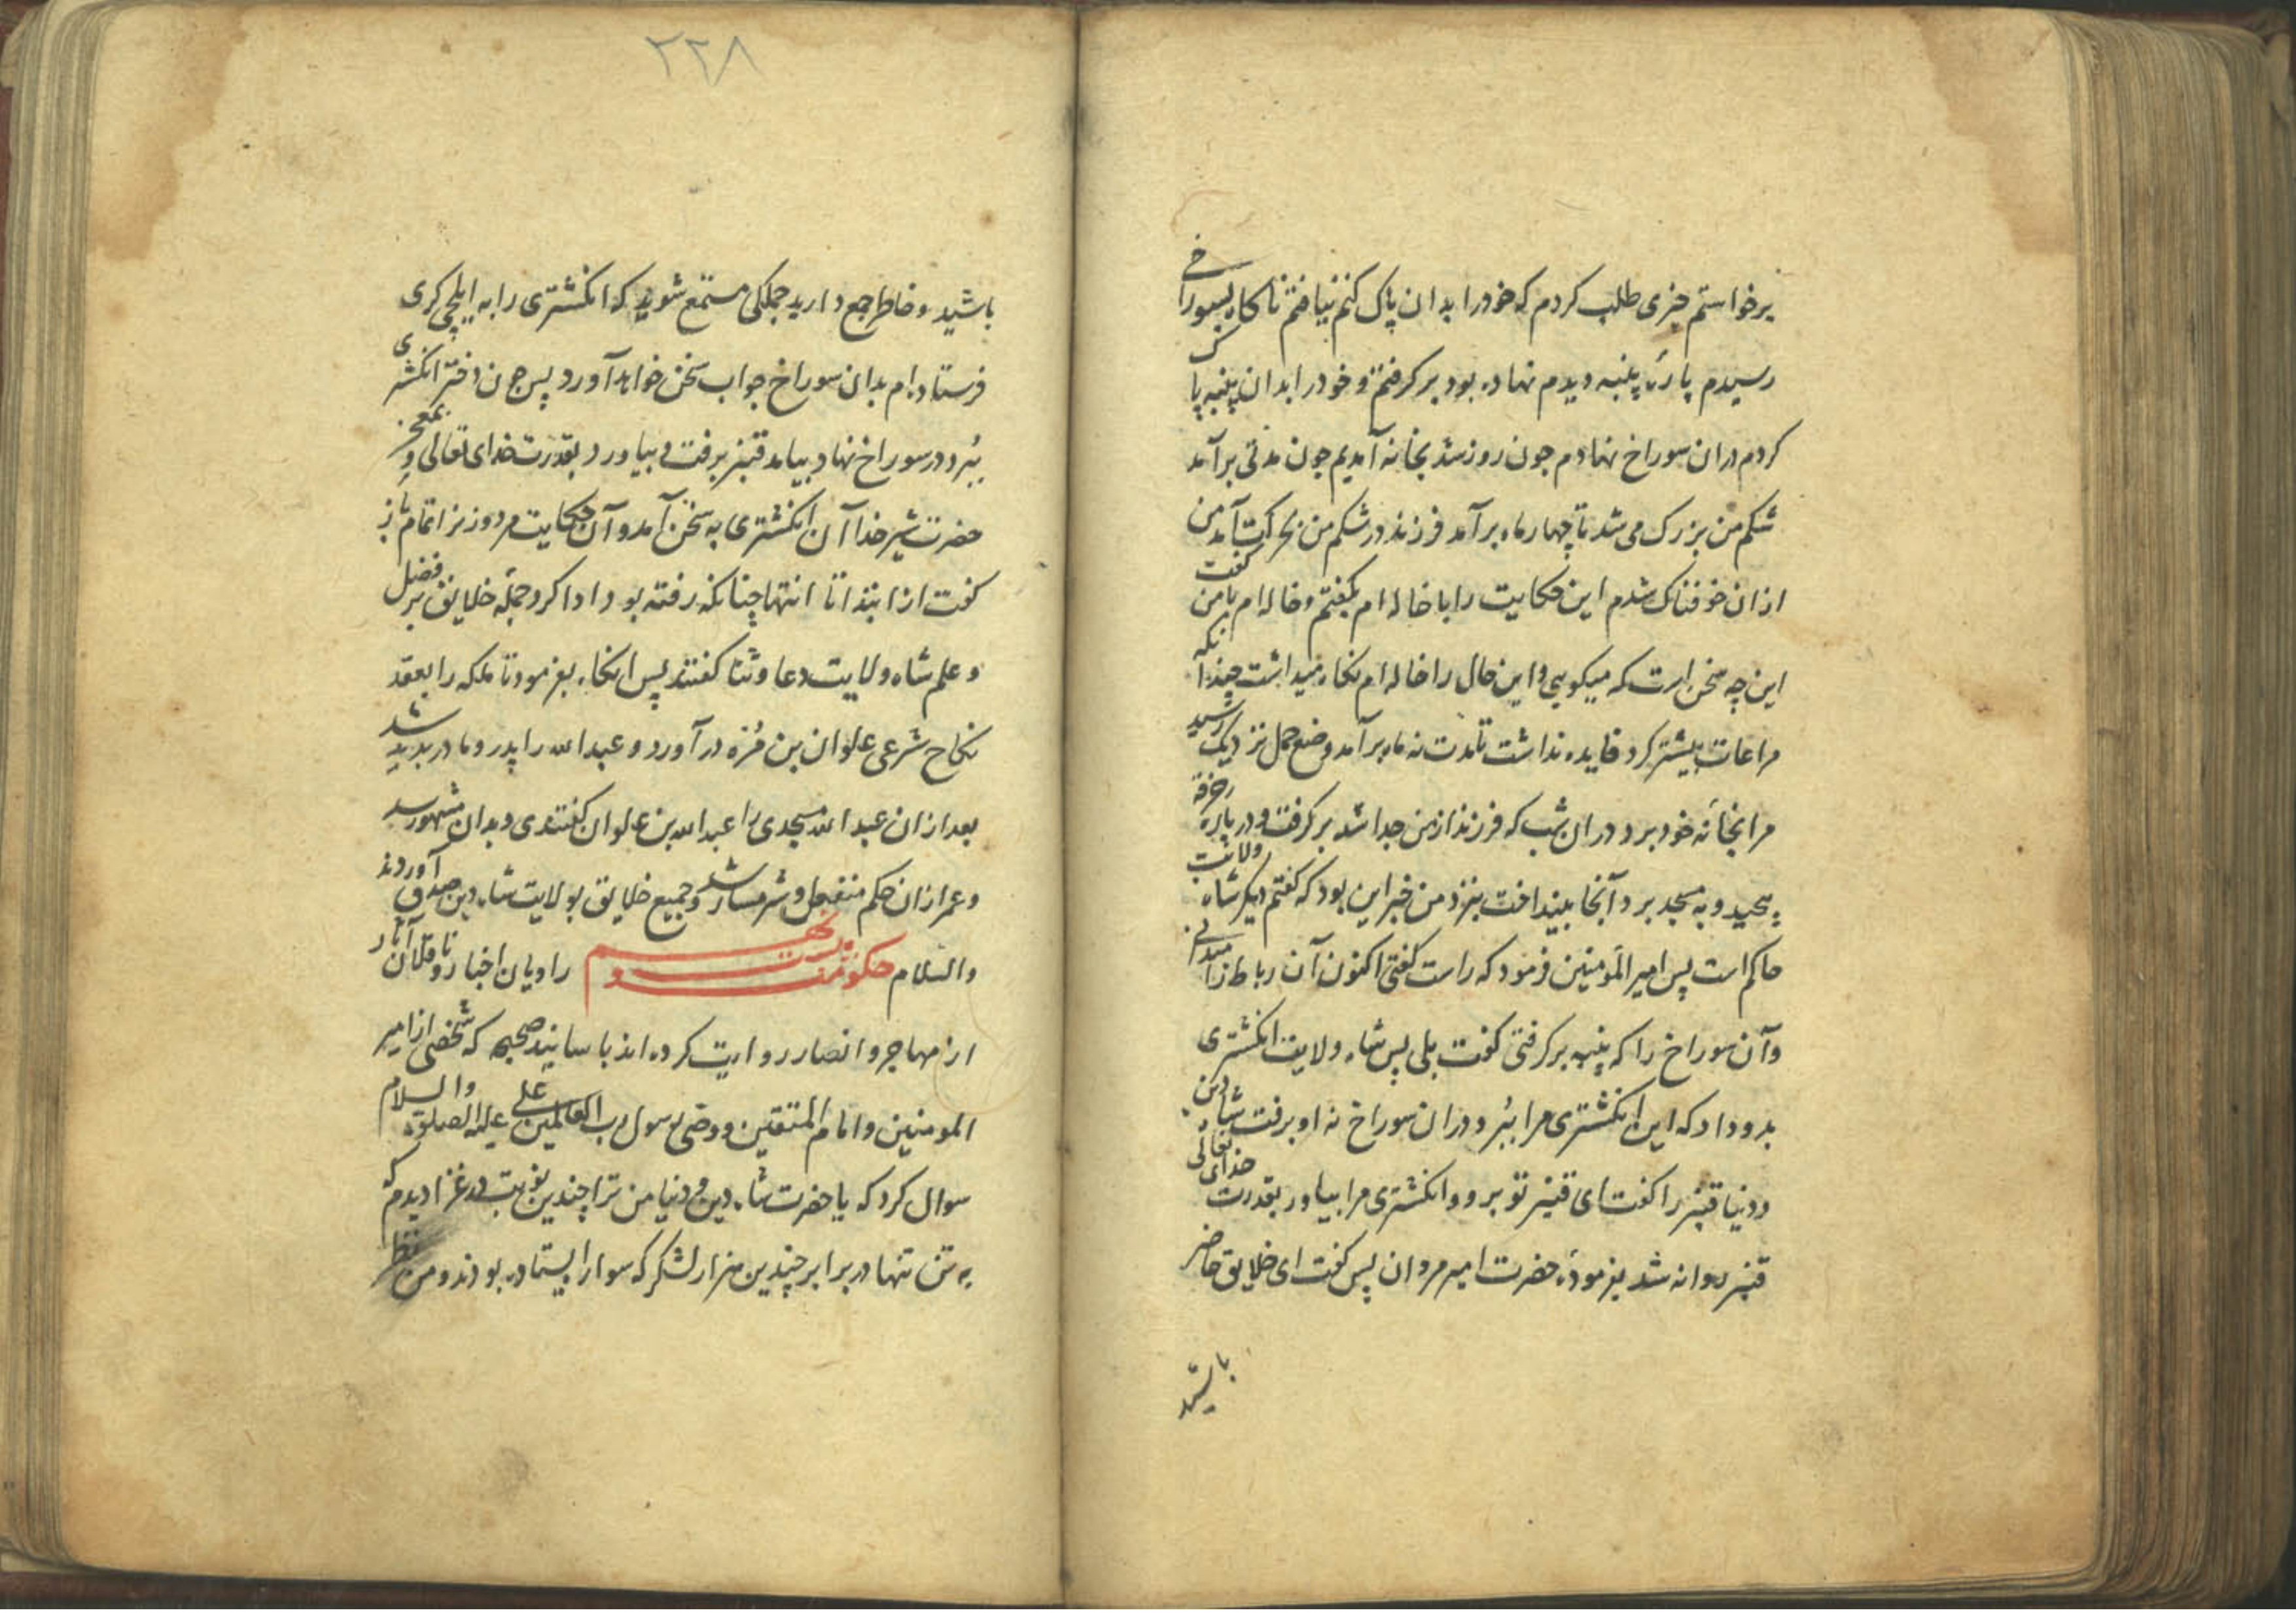 برخواستم چیزی طلب کردم که خود را بدان پاک کنم نیافتم ناکاه بسوراخی
رسیدم پارهٔ پنبه دیدم نهاده بود برکرفتم و خود را بدان پنبه پاک
کردم دران سوراخ نهادم چون روز شد بخانه آمدیم چون مدتی برآمد
شکم من بزرک می شد تا چهار ماه برآمد فرزند در شکم من بحرکت آمد من
ازان خوفناک شدم این حکایت را با خاله ام بکفتم و خاله ام با من کفت
این چه سخن است که میکویی و این حال را خاله ام نکاه میداشت چندانکه
مراعات بیشتر کرد فایده نداشت تا مدت نه ماه برآمد وضع حمل نزدیک رسید
مرا بخانهٔ خود برد و دران شب که فرزند از من جدا شد برکرفت و در پارهٔ خرقه
پیچید و به مسجد برد و آنجا بینداخت بنزد من خبر این بود که کفتم دیکر شاه ولایت
حاکم است پس امیر المومنین فرمود که راست کفتی اکنون آن رباط را میدانی
وآن سوراخ را که پنبه برکرفتی کفت بلی پس شاه ولایت انکشتری
بدو داد که این انکشتری مرا ببر و دران سوراخ نه او برفت شاه دین
و دنیا قنبر را کفت ای قنبر تو برو و انکشتری مرا بیاور بقدرت خدای تعالی
قنبر روانه شد بفرمودهٔ حضرت امیر مردان پس کفت ای خلایق حاضر
باشید
۲۲۸
باشید و خاطر جمع دارید جملکی مستمع شوید که انکشتری را به ایلچی کری
فرستاده ام بدان سوراخ جواب سخن خواهد آورد پس چون دختر انکشتری
ببرد و در سوراخ نهاد و بیامد قنبر برفت و بیاورد بقدرت خدای تعالی و بمعجزه
حضرت شیر خدا آن انکشتری به سخن آمد و آن حکایت مرد و زن را تمام باز
کفت از ابتدا تا انتها چنانکه رفته بود ادا کرد و جمله خلایق بر فضل
و علم شاه ولایت دعا و ثنا کفتند پس انکاه بفرمود تا ملکه را بعقد
نکاح شرعی علوان بن مره درآورد و عبد الله را پدر و مادر پدید شد
بعد ازان عبد الله مسجدی را عبد الله بن علوان کفتندی و بدان مشهور شد
و عمر ازان حکم منفعل و شرمسار شد و جمیع خلایق بولایت شاه دین صدق آوردند
والسلام حکومت راویان اخبار و ناقلان آثار
از مهاجر و انصار روایت کرده اند باسانید صحیحه که شخصی از امیر
المومنین و امام المتقین و وصی رسول رب العالمین علی علیه الصلوة والسلام
سوال کرد که یا حضرت شاه دین و دنیا من ترا چندین نوبت در غزا دیدم که
به تن تنها در برابر چندین هزار لشکر که سوار ایستاده بودند و من نظر